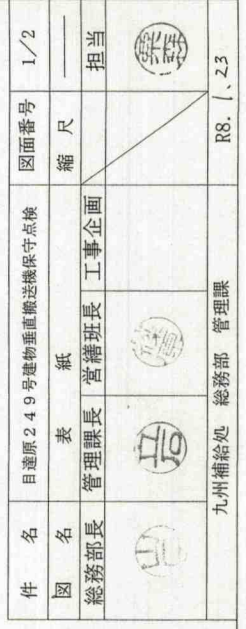 件　名 目達原２４９号建物垂直搬送機保守点検 図面番号 1/2
図　名 表　紙 縮　尺 ――
総務部長 管理課長 営繕班長 工事企画 担当
九州補給処　総務部　管理課 R8. 1、23